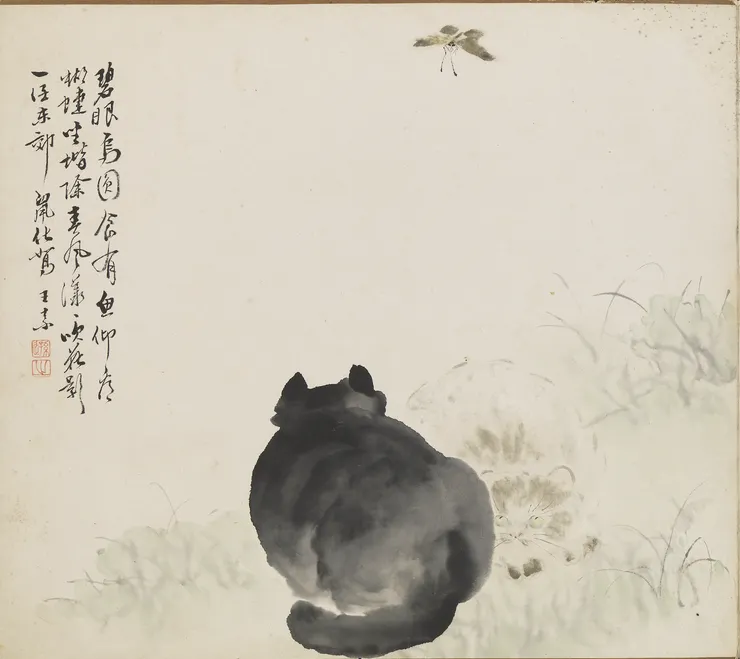 碧眼烏圓食有魚仰看
蝴蝶坐堦除春風漾〻吹花影
一任東郊鼠化鴽 王素